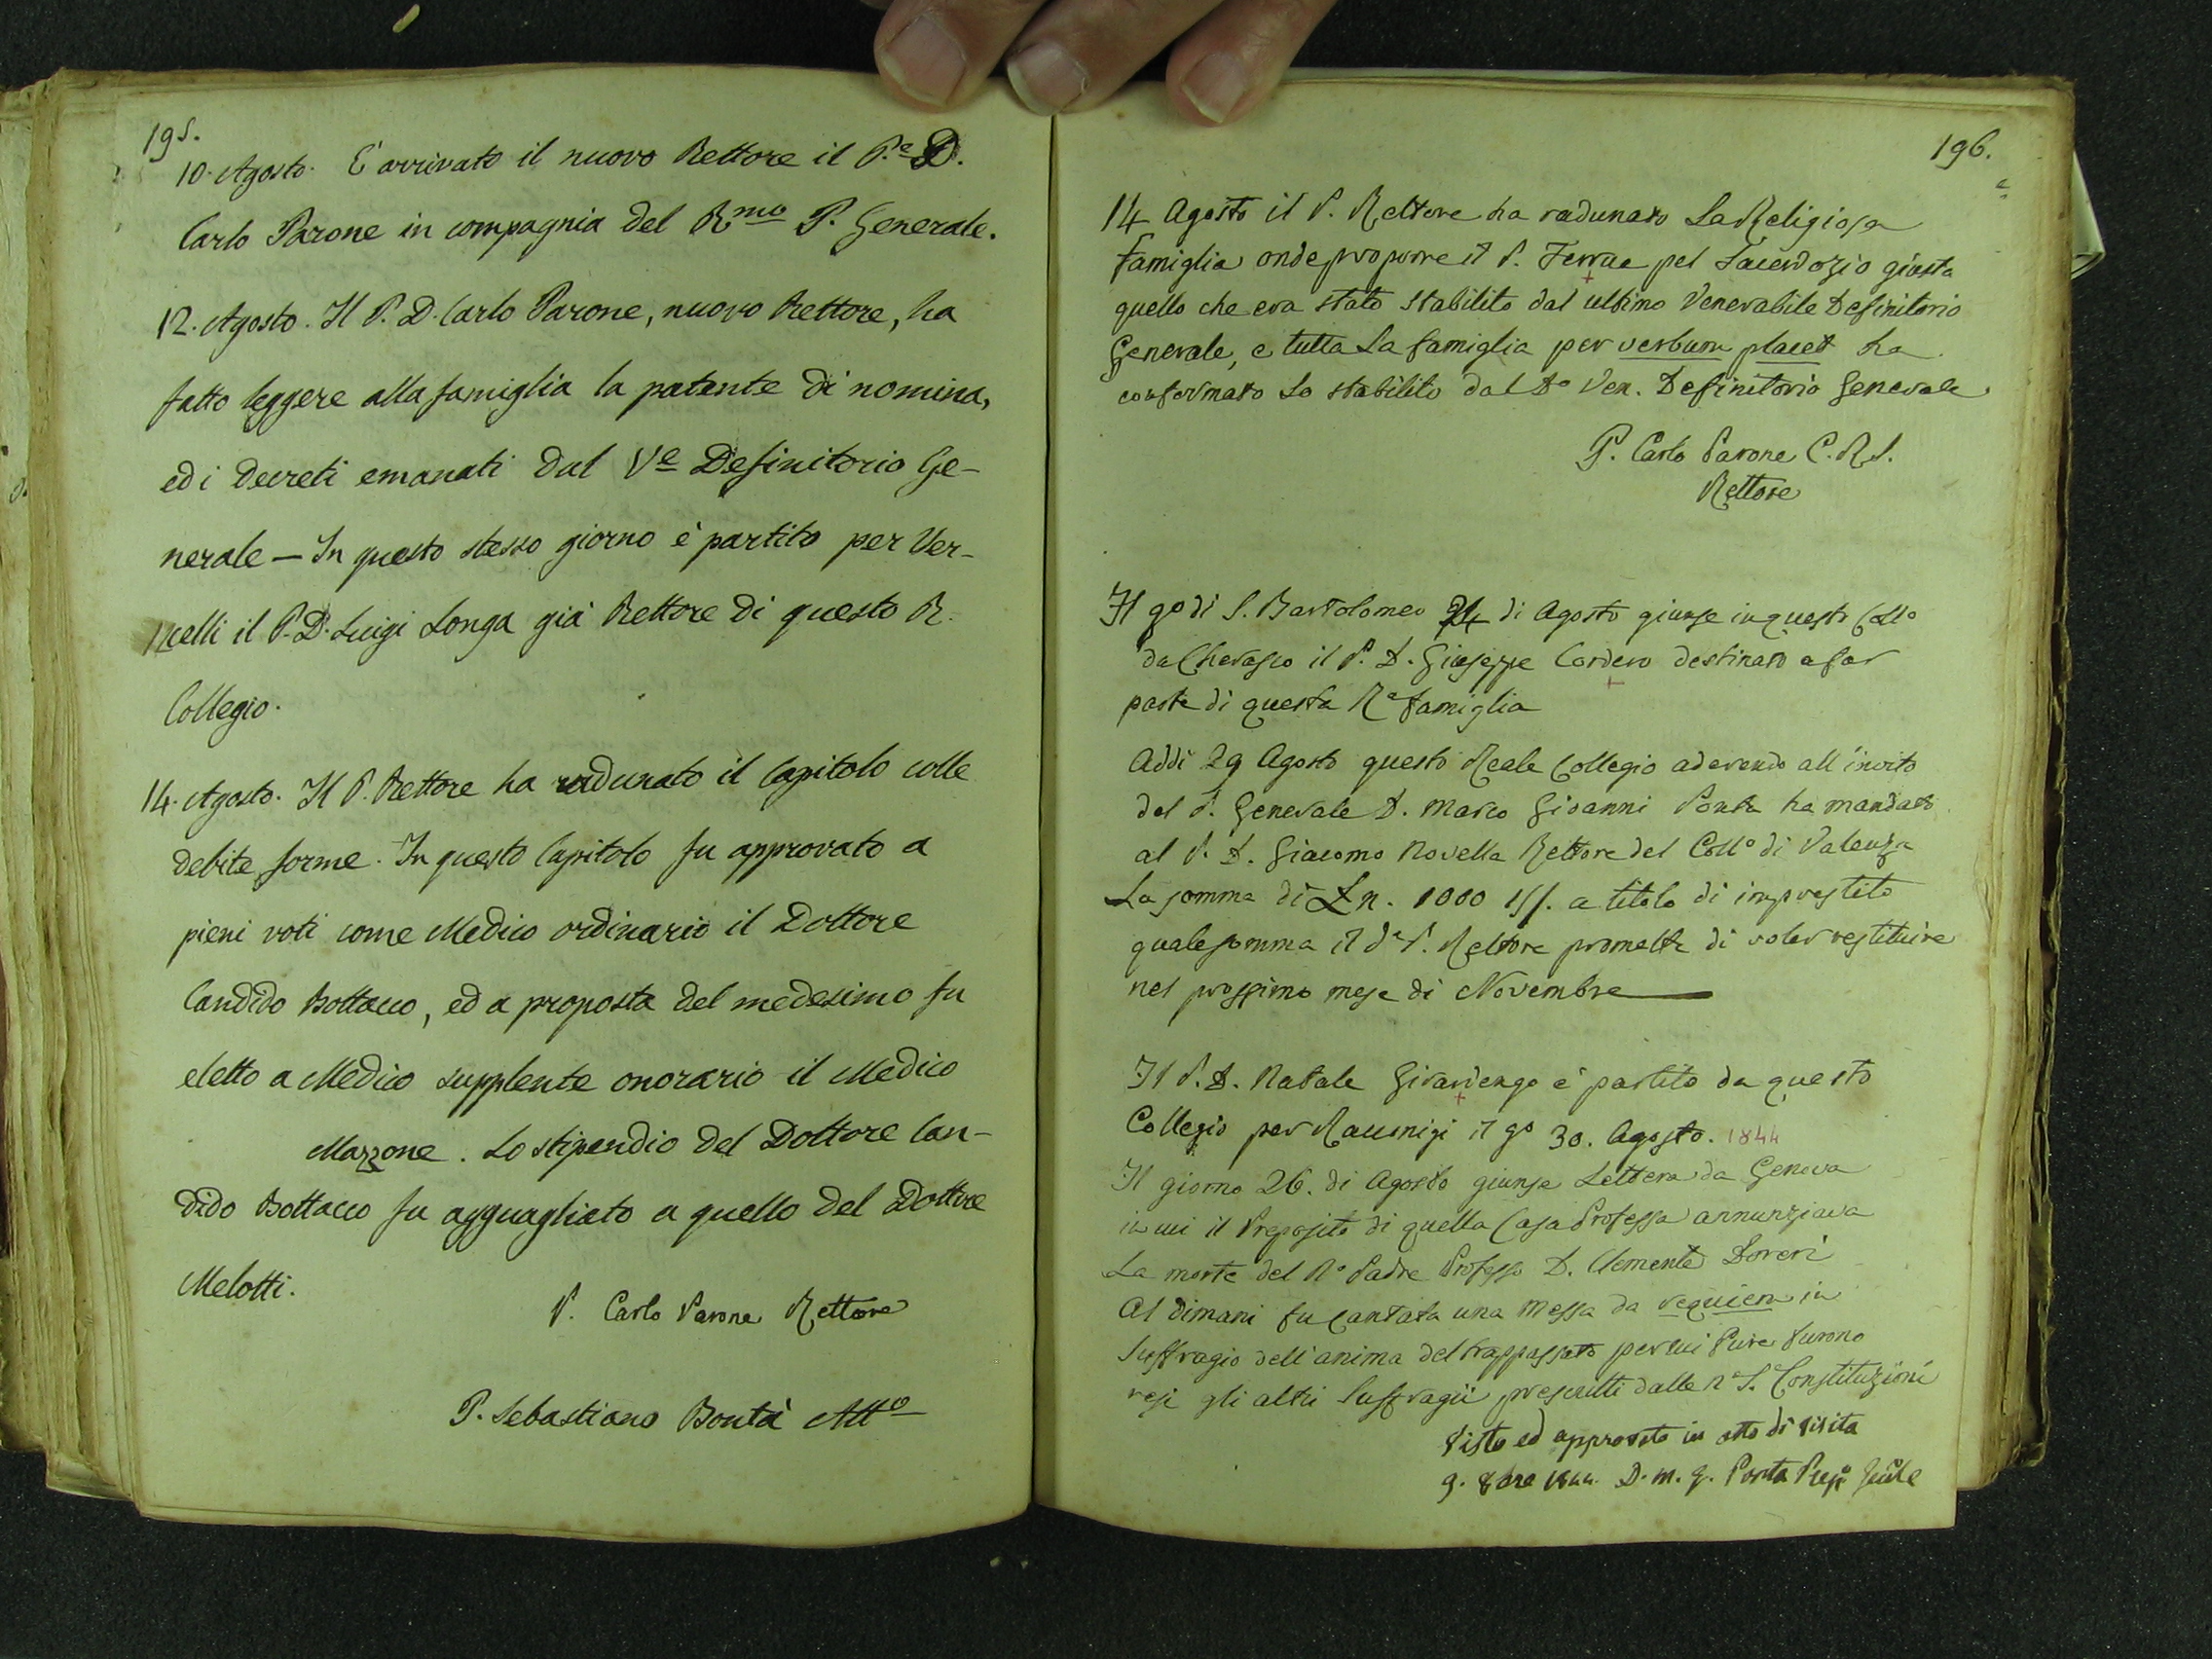 195.
10. Agosto. È arrivato il nuovo Rettore il P.e D.
Carlo Parone in compagnia del Rmo P. Generale.
12. Agosto. Il P. D. Carlo Parone, nuovo Rettore, ha
fatto leggere alla famiglia la patente di nomina,
ed i Decreti emanati dal Ve Definitorio Ge-
nerale — In questo stesso giorno è partito per Ver-
celli il P. D. Luigi Longa già Rettore di questo R.
Collegio.
14. Agosto. Il P. Rettore ha radunato il Capitolo colle
debite forme. In questo Capitolo fu approvato a
pieni voti come Medico ordinario il Dottore
Candido Bottacco, ed a proposta del medesimo fu
eletto a Medico supplente onorario il Medico
Mazzone. Lo stipendio del Dottore Can-
dido Bottacco fu agguagliato a quello del Dottore
Melotti.
P. Carlo Parone Rettore
P. Sebastiano Bontà Atto
196.
14 Agosto il P. Rettore ha radunato La Religiosa
famiglia onde proporre il P. Ferrua pel Sacerdozio giusta
quello che era stato stabilito dal ultimo Venerabile Definitorio
Generale, e tutta La famiglia per verbum placet ha
confermato Lo stabilito dal Do Ven. Definitorio Generale
P. Carlo Parone C. R. S.
Rettore
Il go di S. Bartolomeo 24 di Agosto giunse in questo Collo
da Cherasco il P. D. Giuseppe Cordero destinato a far
parte di questa Ra famiglia
Addì 29 Agosto questo Reale Collegio aderendo all'invito
del P. Generale D. Marco Giovanni Ponta ha mandato
al P. D. Giacomo Novella Rettore del Collo di Valenza
La somma di Ln. 1000 a titolo di imprestito
quale somma il do P. Rettore promette di voler restituire
nel prossimo mese di Novembre
Il P. D. Natale Girardengo è partito da questo
Collegio per Racconigi il go 30. Agosto. 1844
Il giorno 26. di Agosto giunse Lettera da Genova
in cui il Preposito di quella Casa Professa annunziava
La morte del Ro Padre Professo D. Clemente Doveri
Al dimani fu Cantata una Messa da requiem in
Suffragio dell'anima del trappassato per cui Pure furono
resi gli altri Suffragii prescritti dalle Ne S. Constituzioni
Visto ed approvato in atto di visita
9. 8bre 1844. D. M. G. Ponta Prepo Genle